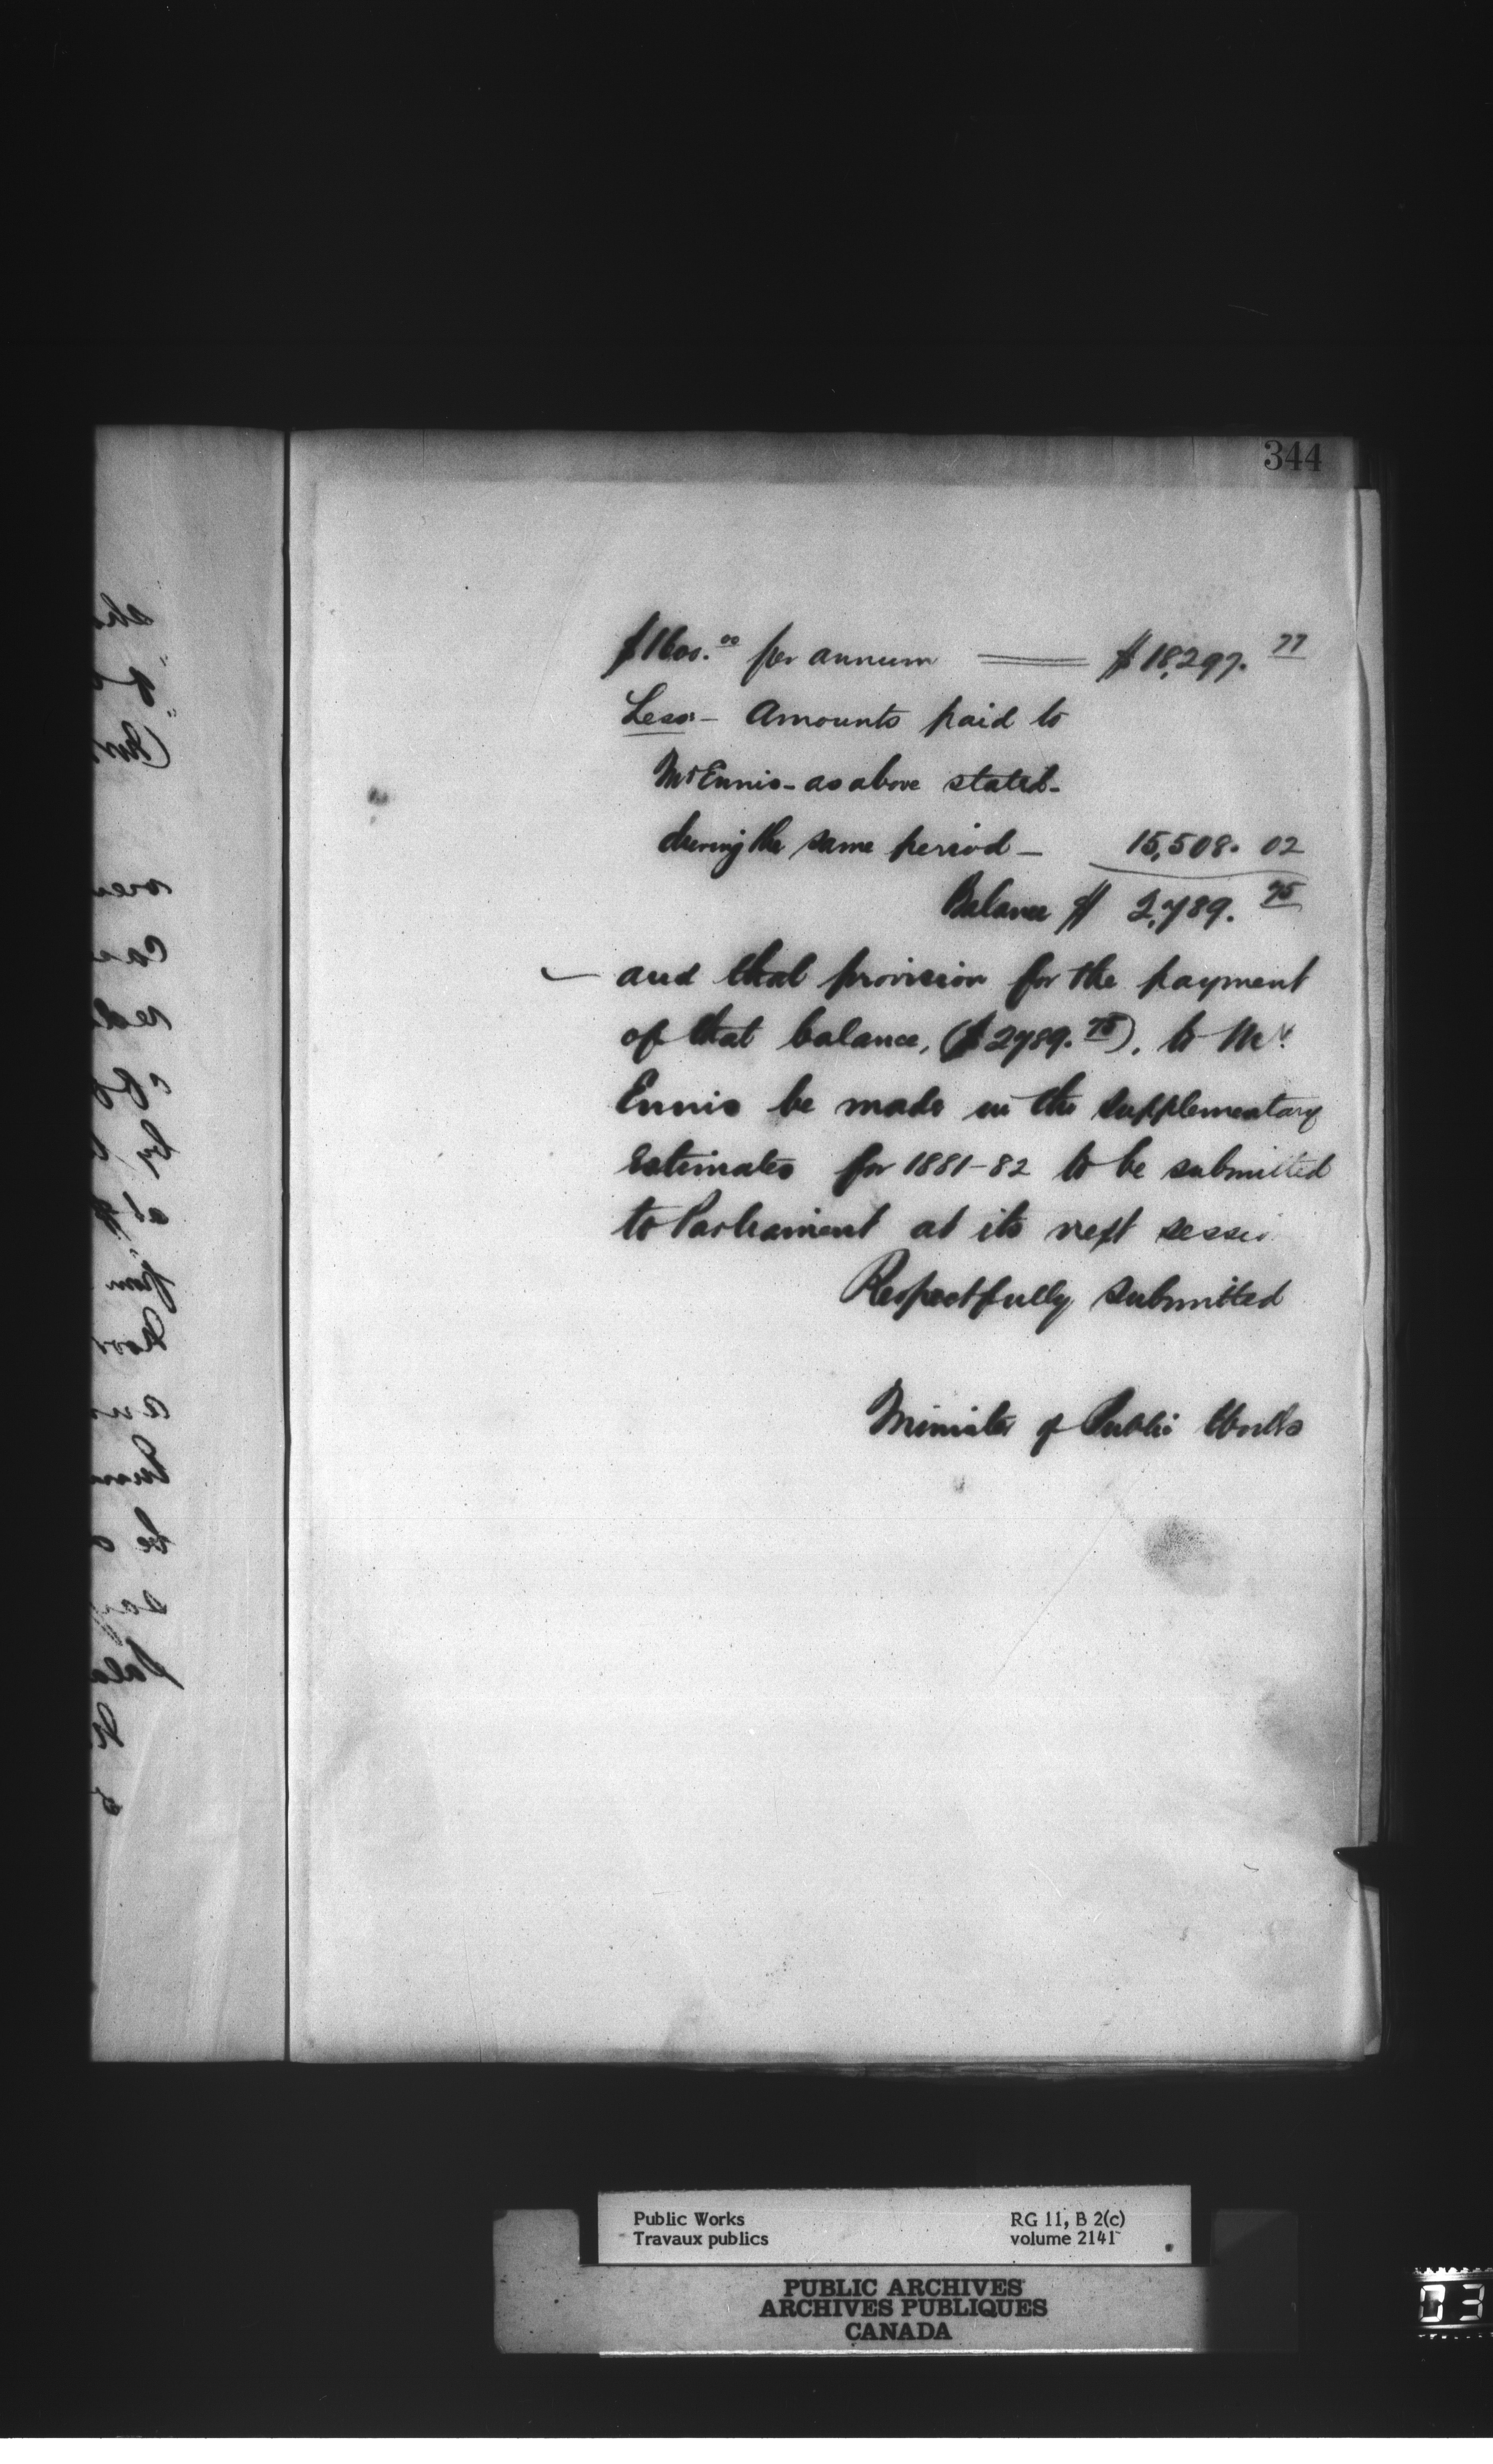 344
$1600.00 per annum — $18,297.77
Less - Amounts paid to
Mr Ennis - as above stated -
during the same period - 15,508.02
Balance $ 2,789.75
- and that provision for the payment
of that balance, ($2789.75), to Mr.
Ennis be made in the supplementary
Estimates for 1881-82 to be submitted
to Parliament at its next sessi
Respectfully submitted
Minister of Public Works
Public Works
Travaux publics
RG 11, B 2(c)
volume 2141
PUBLIC ARCHIVES
ARCHIVES PUBLIQUES
CANADA
03